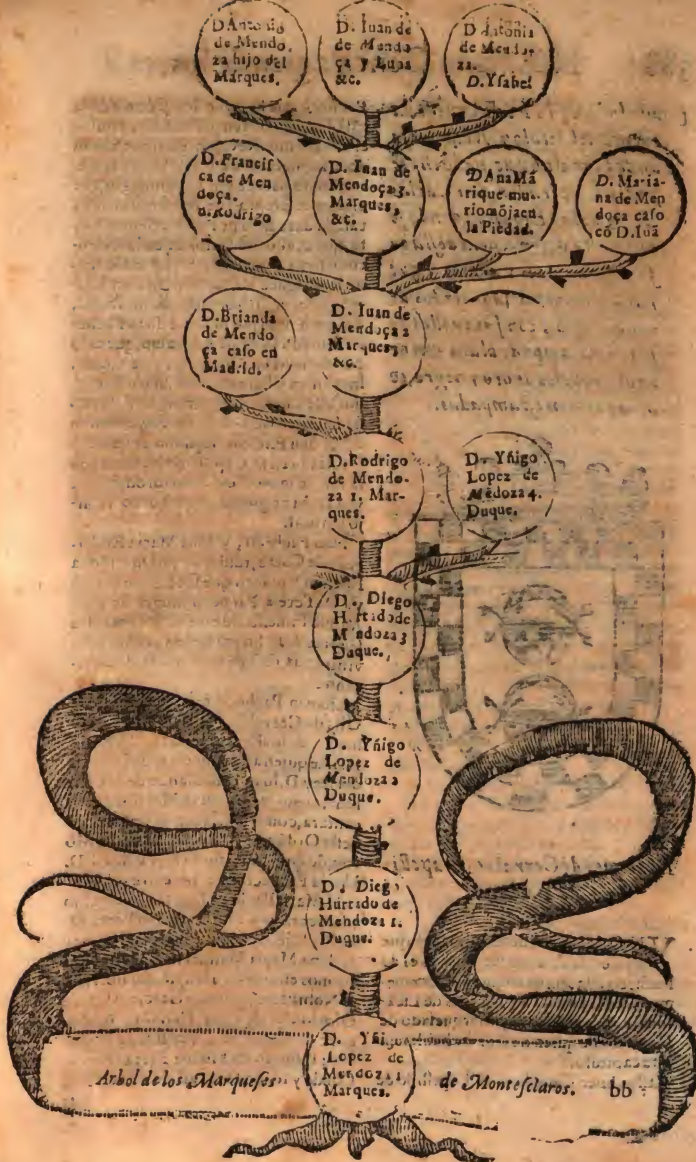 D Antonio
de Mendo.
za hijo del
Marques.
D. Iuan de
de Mendo
ça y Luna
&c.
D Antonia
de Mendo-
za.
D. Ysabel
D. Francis
ca de Men
doça.
D. Rodrigo
D. Iuan de
Mendoça 3.
Marques,
&c.
D Ana Má
rique mu-
rio mōja en
la Piedad.
D. Maria-
na de Men
doça caso
cō D. Iuā
D. Brianda
de Mendo
ça caso en
Madrid.
D. Iuan de
Mendoça 2
Marques,
&c.
D. Rodrigo
de Mendo-
za 1. Mar-
ques.
D. Yñigo
Lopez de
Mēdoza 4.
Duque.
D. Diego
Hurtado de
Mendoza 3
Duque.
D. Yñigo
Lopez de
Mendoza 2
Duque.
D. Diego
Hurtado de
Mendoza 1.
Duque.
D. Yñigo
Lopez de
Mendoza 1
Marques.
Arbol de los Marqueses de Montesclaros.
bb